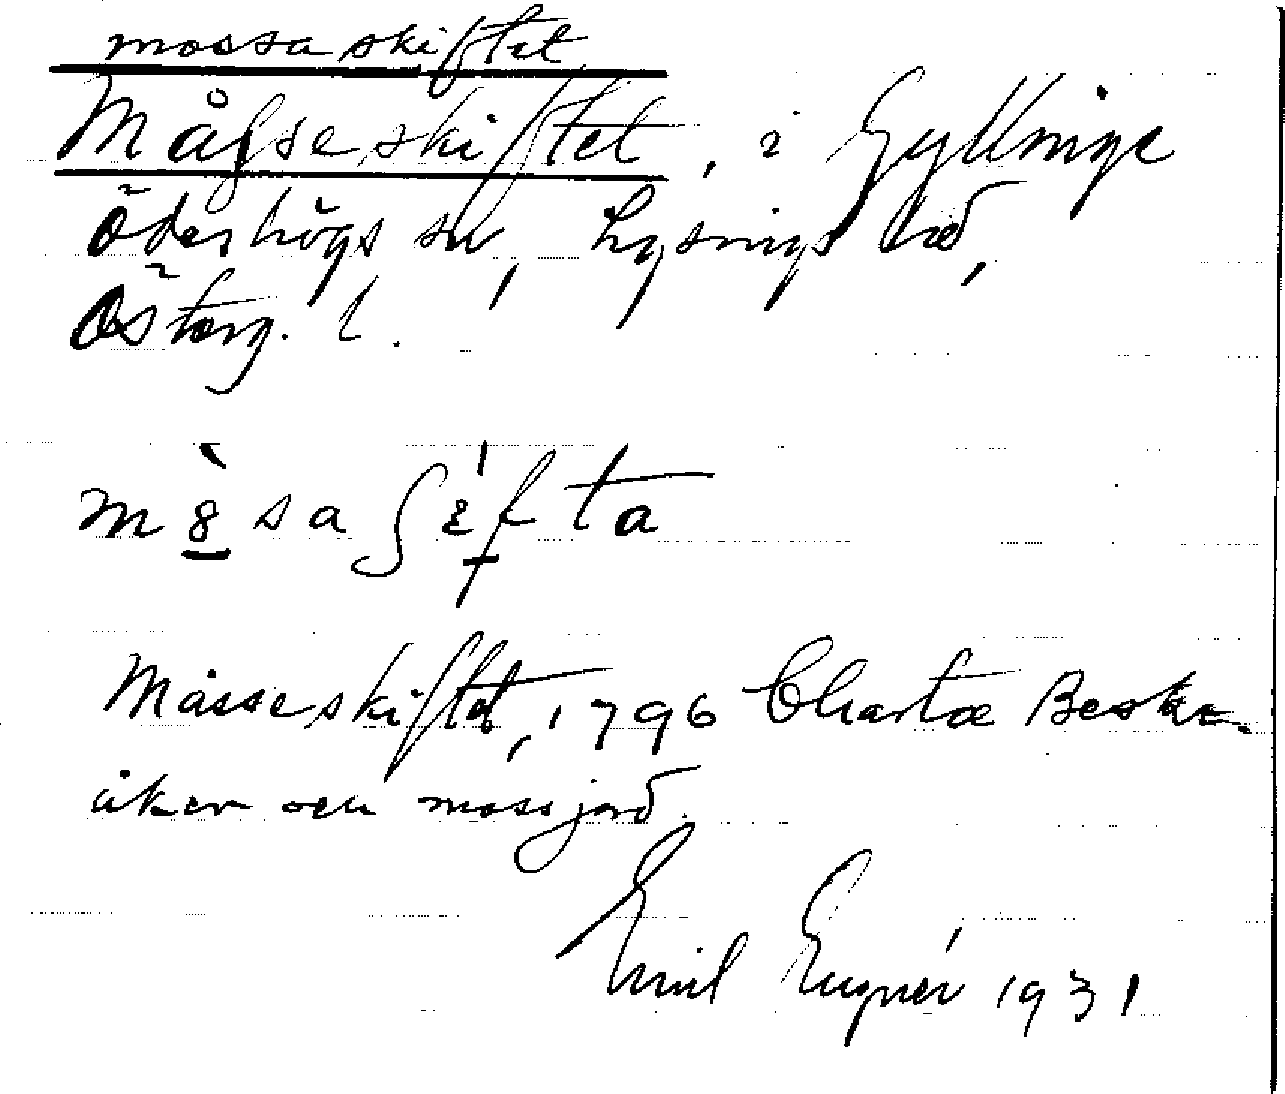 mossaskiftet
Måsseskiftet, i Gyllinge
Ödeshögs sn, Lysings hd,
Österg. l.
Måsseskiftet, 1796 Charta Beskr.
åker och mossjord.
Emil 1931